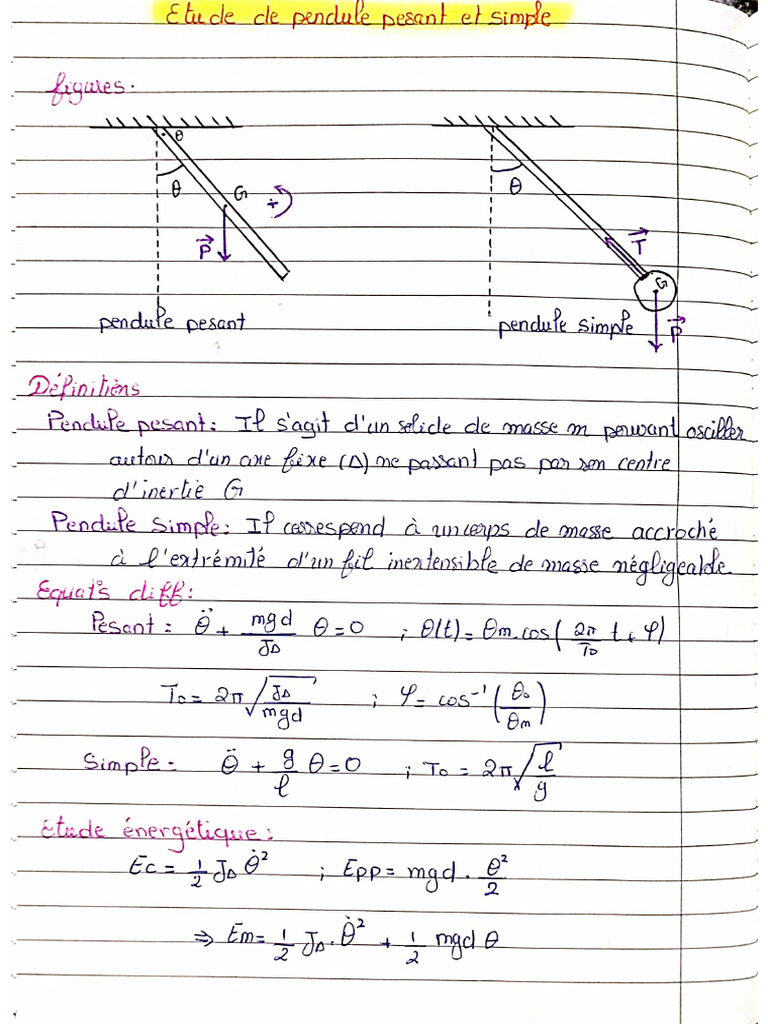 Etude de pendule pesant et simple
figures.
θ
θ
G
+
P
pendule pesant
θ
T
G
P
pendule simple
Définitions
Pendule pesant: Il s'agit d'un solide de masse m pouvant osciller
autour d'un axe fixe (Δ) ne passant pas par son centre
d'inertie G
Pendule simple: Il correspond à un corps de masse accroché
à l'extrémité d'un fil inextensible de masse négligeable.
Equats diff:
Pesant: θ̈ + mgd/JΔ θ = 0 ; θ(t) = θm.cos(2π/T0 t + φ)
T0 = 2π√(JΔ/mgd) ; φ = cos⁻¹(θ0/θm)
Simple- θ̈ + g/l θ = 0 ; T0 = 2π√(l/g)
Etude énergétique:
Ec = 1/2 JΔ θ̇² ; Epp = mgd . θ²/2
⇒ Em = 1/2 JΔ . θ̇² + 1/2 mgd θ